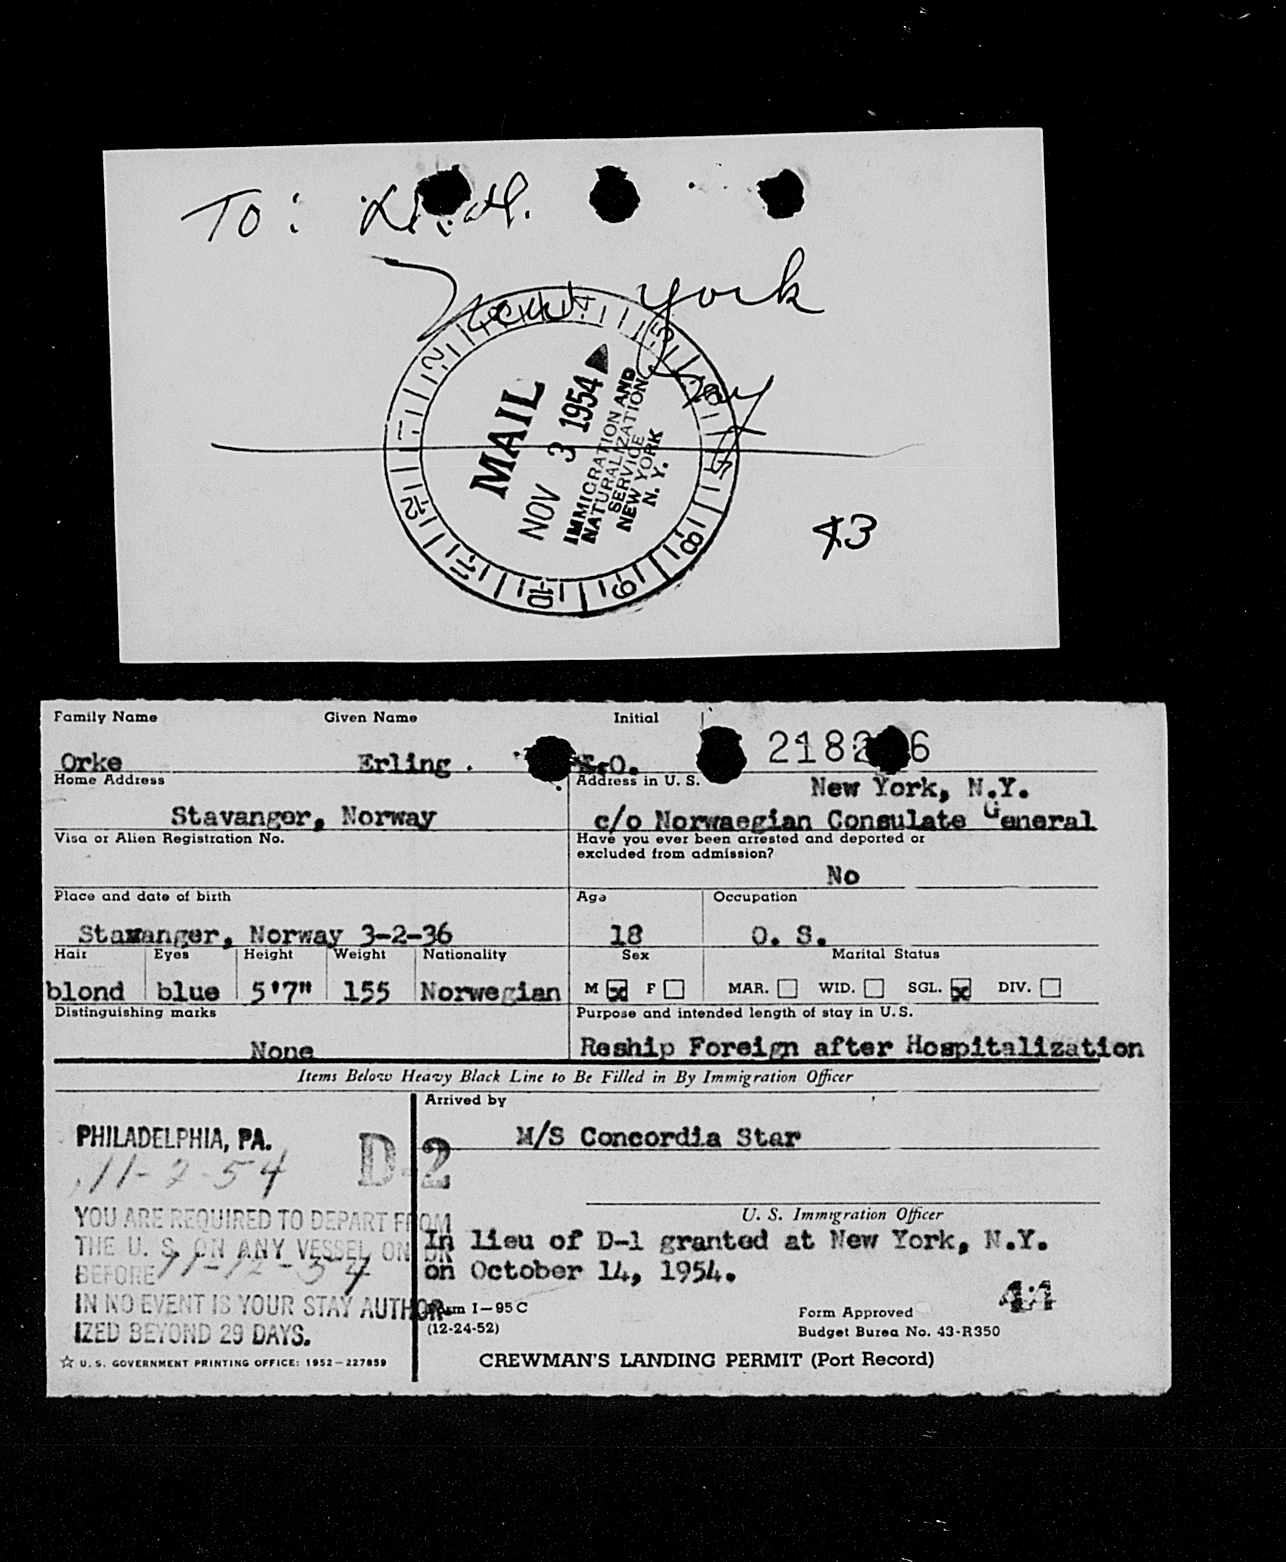 To:
New York
N.Y.
MAIL
NOV 3 1954
IMMIGRATION AND
NATURALIZATION
SERVICE
NEW YORK
N. Y.
43
Family Name Given Name Initial
Orke Erling . E.O.
Home Address Address in U. S. New York, N.Y.
Stavanger, Norway c/o Norwaegian Consulate General
Visa or Alien Registration No. Have you ever been arrested and deported or
excluded from admission?
No
Place and date of birth Age Occupation
Stavanger, Norway 3-2-36 18 O. S.
Hair Eyes Height Weight Nationality Sex Marital Status
blond blue 5'7" 155 Norwegian M x F MAR. WID. SGL. x DIV.
Distinguishing marks Purpose and intended length of stay in U.S.
None Reship Foreign after Hospitalization
Items Below Heavy Black Line to Be Filled in By Immigration Officer
Arrived by
PHILADELPHIA, PA. D-2 M/S Concordia Star
11-2-54
U. S. Immigration Officer
YOU ARE REQUIRED TO DEPART FROM
THE U. S. ON ANY VESSEL ON OR
BEFORE 11-12-54
IN NO EVENT IS YOUR STAY AUTHOR-
IZED BEYOND 29 DAYS.
In lieu of D-1 granted at New York, N.Y.
on October 14, 1954.
Form I-95 C
(12-24-52)
Form Approved
Budget Burea No. 43-R350
☆ U. S. GOVERNMENT PRINTING OFFICE: 1952-227859
CREWMAN'S LANDING PERMIT (Port Record)